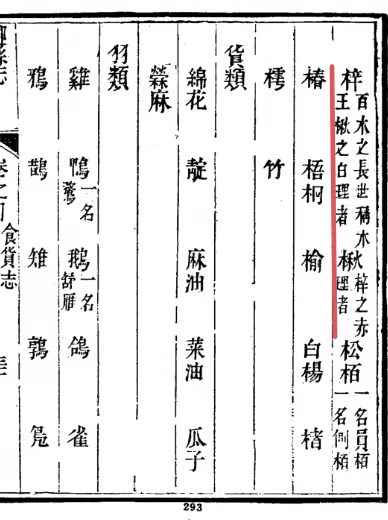 梓百木之長世稱木王楸之白理者楸梓之赤理者松栢一名員栢一名側栢
椿 梧桐 榆 白楊 楮
樗 竹
貨類
綿花 靛 麻油 菜油 瓜子
檾麻
羽類
雞 鴨一名鶩 鵝一名舒雁 鴿 雀
鴉 鵲 雉 鶉 鳧
縣志 卷之 食貨志
293